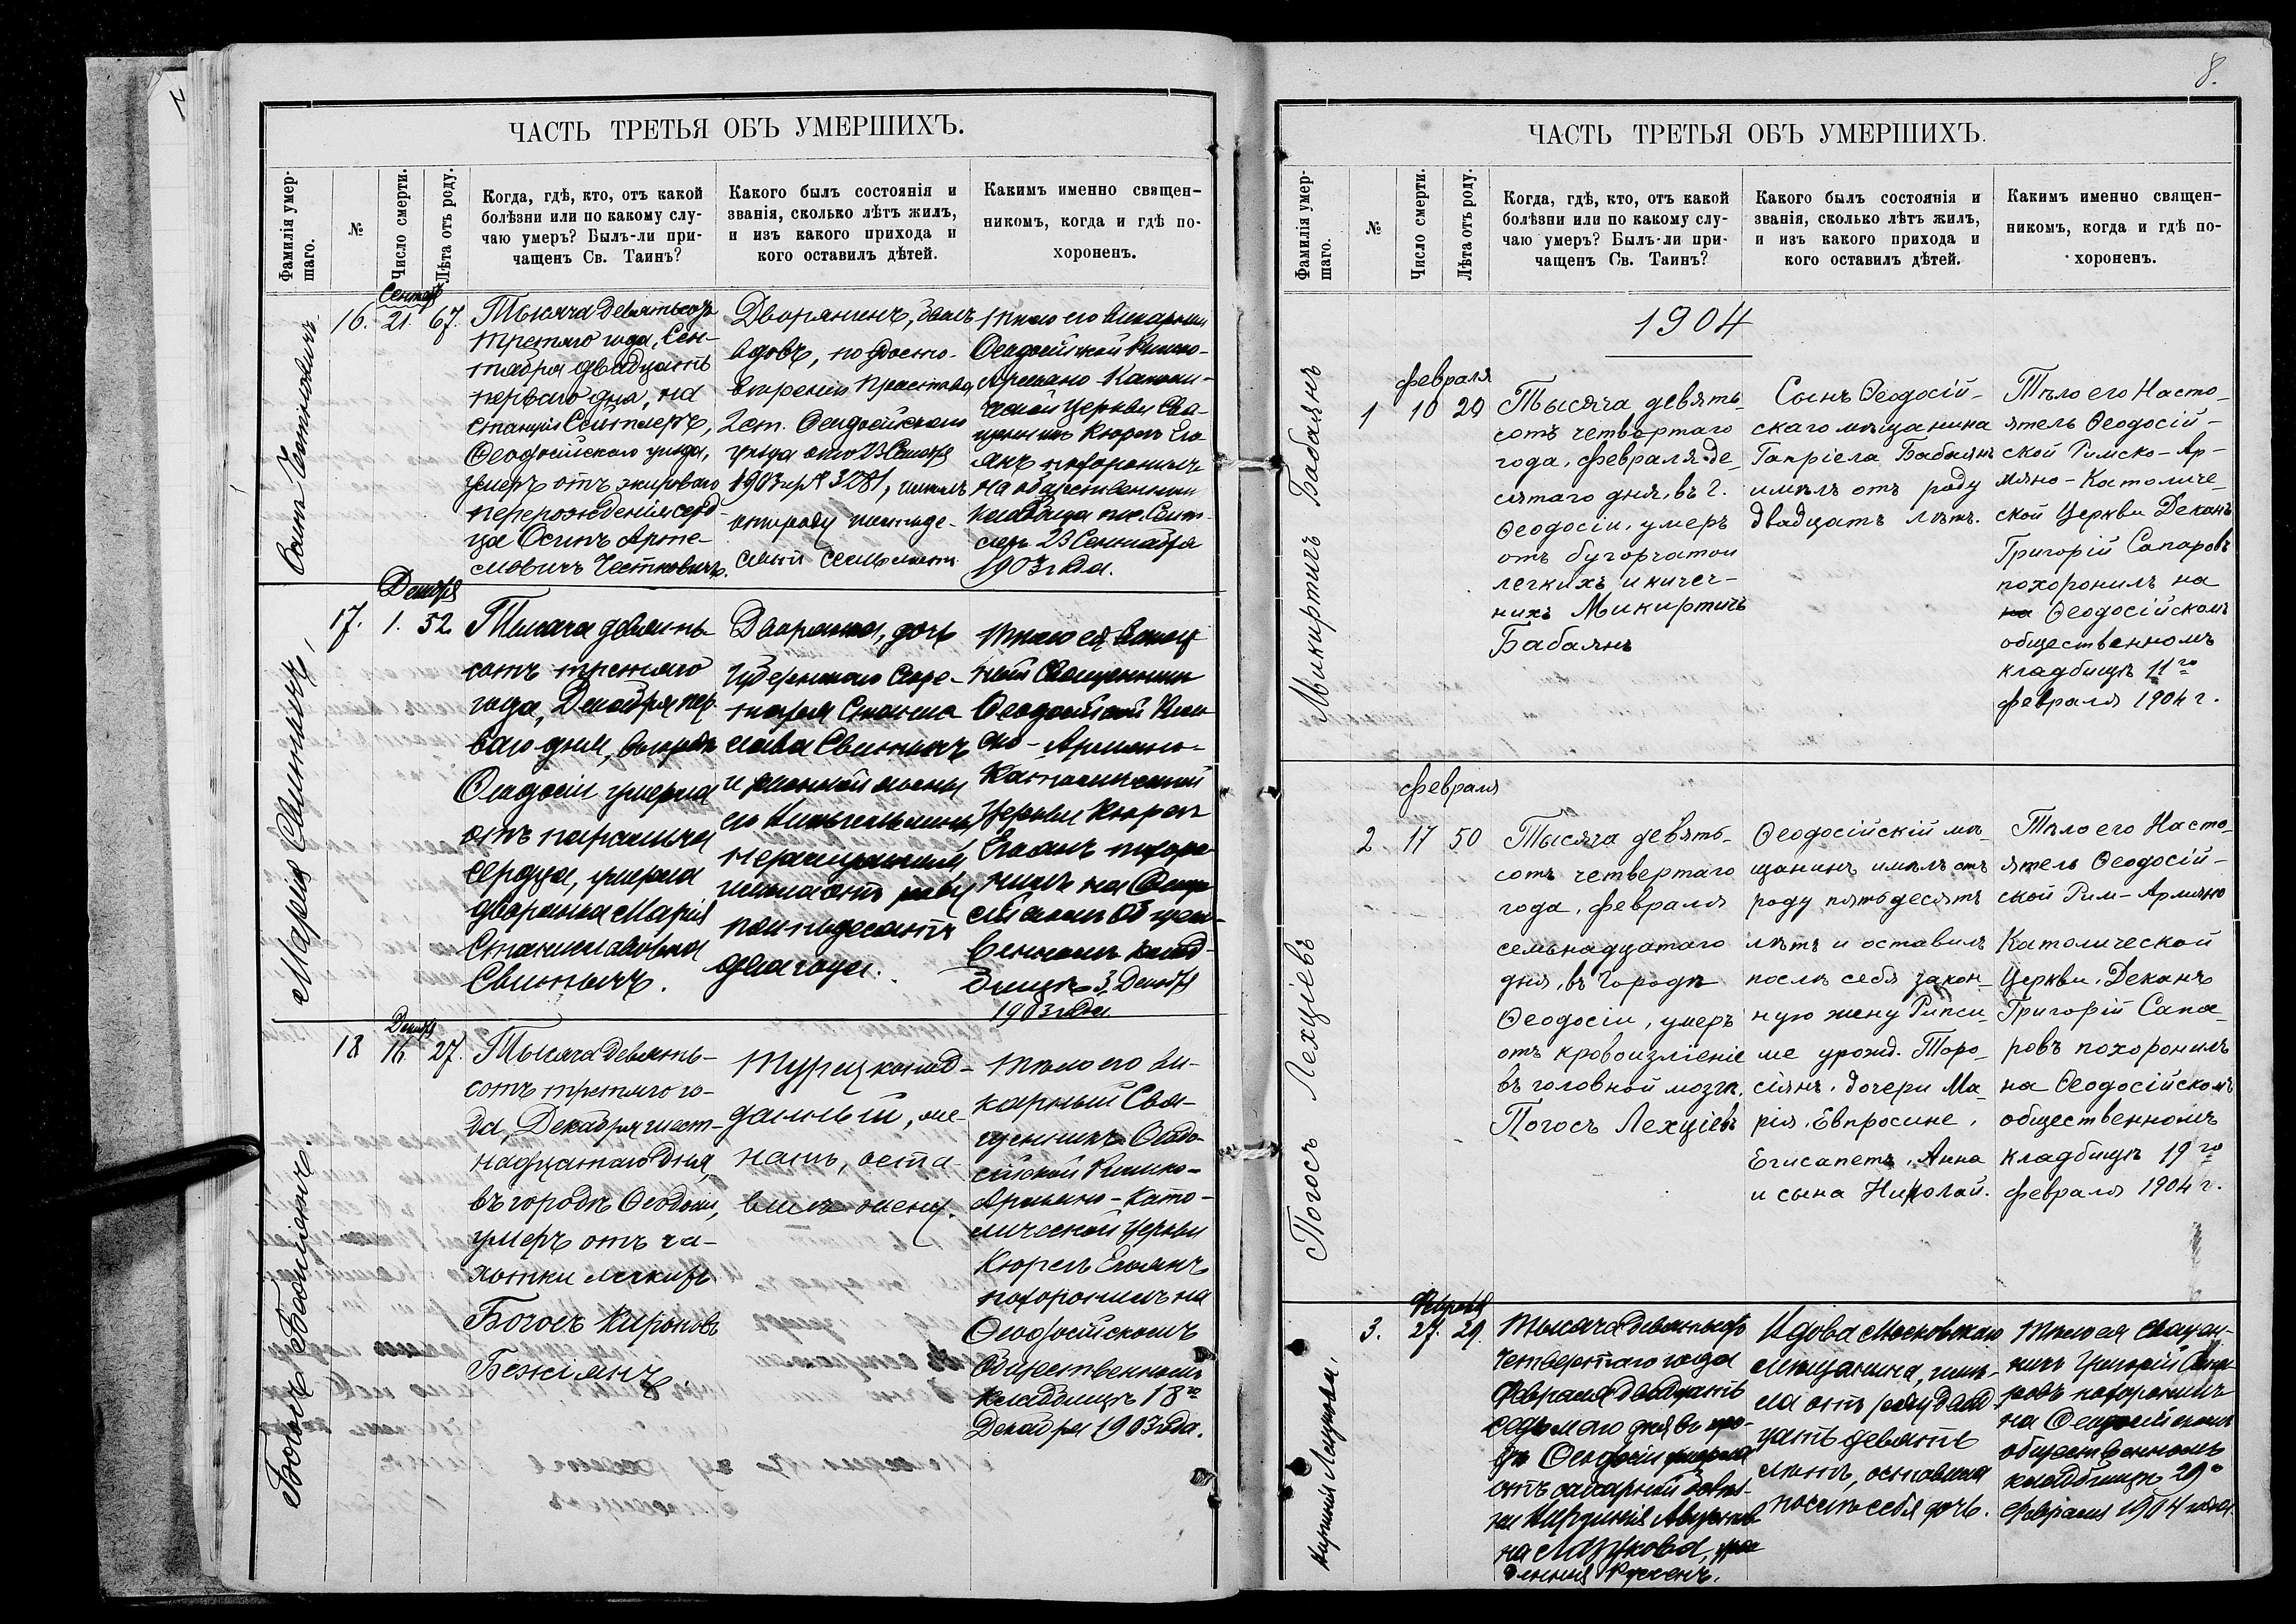 8.
ЧАСТЬ ТРЕТЬЯ ОБЪ УМЕРШИХЪ.
Фамилія умер-
шаго.
№
Число смерти.
Лѣта отъ роду.
Когда, гдѣ, кто, отъ какой
болѣзни или по какому слу-
чаю умеръ? Былъ-ли при-
чащенъ Св. Таинъ?
Какого былъ состоянія и
званія, сколько лѣтъ жилъ,
и изъ какого прихода и
кого оставилъ дѣтей.
Какимъ именно священ-
никомъ, когда и гдѣ по-
хороненъ.
16.
21.
67.
Тысяча девятьсотъ
третяго года, Сен-
тября двадцать
перваго дня, на
станціи
Ѳеодосійскаго уѣзда,
умеръ отъ жироваго
перерожденія серд-
ца Осипъ Арте-
мовичъ
Дворянинъ, былъ
вдовъ, по удосто-
вѣренію Пристава
2 ст. Ѳеодосійскаго
уѣзда отъ 23 Сентября
1903 г. № 3281, имѣлъ
отъ роду шестьде-
сятъ семь лѣтъ.
Тѣло его викарный
Ѳеодосійской Римско-
Армяно-Католи-
ческой Церкви Свя-
щенникъ Кюрегъ Его-
янъ похоронилъ
на общественномъ
кладбищѣ
23 Сентября
1903 года.
Марія
17.
Декабря
1.
52
Тысяча девять-
сотъ третяго
года, Декабря пер-
ваго дня, въ городѣ
Ѳеодосіи умерла
отъ паралича
сердца, умерла
дворянка Марія
Станиславовна
Дворянка, дочь
Губернскаго Секре-
таря Станис-
лава
и законной жены
его
имѣла отъ роду
пятьдесятъ
два года.
Тѣло ея
Священникъ
Ѳеодосійской Рим-
ско-Армяно-
Католической
Церкви Кюрегъ
Егоянъ похоро-
нилъ на Ѳеодо-
сійскомъ Общест-
венномъ клад-
бищѣ 3 Декабря
1903 года
Богосъ Бежіянъ.
18
Декабря
16
27.
Тысяча девять-
сотъ третяго го-
да, Декабря шест-
надцатаго дня,
въ городѣ Ѳеодосіи,
умеръ отъ ча-
хотки легкихъ
Богосъ Кироковъ
Бежіянъ.
Турецко-под-
данный, же-
натъ, оста-
вилъ жену.
Тѣло его ви-
карный Свя-
щенникъ Ѳеодо-
сійской Римско-
Армяно-Като-
лической Церкви
Кюрегъ Егоянъ
похоронилъ на
Ѳеодосійскомъ
Общественномъ
кладбищѣ 18го
Декабря 1903 года.
ЧАСТЬ ТРЕТЬЯ ОБЪ УМЕРШИХЪ.
Фамилія умер-
шаго.
№
Число смерти.
Лѣта отъ роду.
Когда, гдѣ, кто, отъ какой
болѣзни или по какому слу-
чаю умеръ? Былъ-ли при-
чащенъ Св. Таинъ?
Какого былъ состоянія и
званія, сколько лѣтъ жилъ,
и изъ какого прихода и
кого оставилъ дѣтей.
Какимъ именно священ-
никомъ, когда и гдѣ по-
хороненъ.
1904
Микиртичъ Бабаянъ
1
февраля
10
20
Тысяча девять-
сотъ четвертаго
года, февраля де-
сятаго дня, въ г.
Ѳеодосіи, умеръ
отъ бугорчатои
легкихъ и кичеч-
нихъ Микиртичъ
Бабаянъ
Сынъ Ѳеодосій-
скаго мѣщанина
Гапріела Бабаянъ
имѣлъ отъ роду
двадцать лѣтъ.
Тѣло его Насто-
ятель Ѳеодосій-
ской Римско-Ар-
мяно-Католиче-
ской Церкви Деканъ
Григорій Сапаровъ
похоронилъ на
на Ѳеодосійскомъ
общественномъ
кладбищѣ 11го
февраля 1904 г.
Погосъ Лехціевъ
2
февраля
17
50
Тысяча девять-
сотъ четвертаго
года, февраля
семьнадцатаго
дня, въ городѣ
Ѳеодосіи, умеръ
отъ кровоизліеніе
въ головной мозгъ,
Погосъ Лехціевъ
Ѳеодосійскій мѣ-
щанинъ имѣлъ отъ
роду пятьдесятъ
лѣтъ и оставилъ
послѣ себя закон-
ную жену Рипси-
ме урожд. Торо-
сіянъ, дочери Ма-
рія, Евпросине,
Егисапетъ, Анна
и сына Николай.
Тѣло его Насто-
ятель Ѳеодосій-
ской Рим-Армяно
Католической
Церкви, Деканъ
Григорій Сапа-
ровъ похоронилъ
на Ѳеодосійскомъ
общественномъ
кладбищѣ 19го
февраля 1904 г.
3.
Февраля
27.
29.
Тысяча девятьсотъ
четвертаго года
Февраля двадцать
седьмаго дня въ горо-
дѣ Ѳеодосіи умерла
отъ сахарной болѣз-
ни
на Лацкова, урож-
денная
Вдова Московскаго
мѣщанина, имѣ-
ла отъ роду двад-
цать девять
лѣтъ, оставила
послѣ себя дочь.
Тѣло ея Священ-
никъ Григорій Сапа-
ровъ похоронилъ
на Ѳеодосійскомъ
общественномъ
кладбищѣ 29го
Февраля 1904 года.